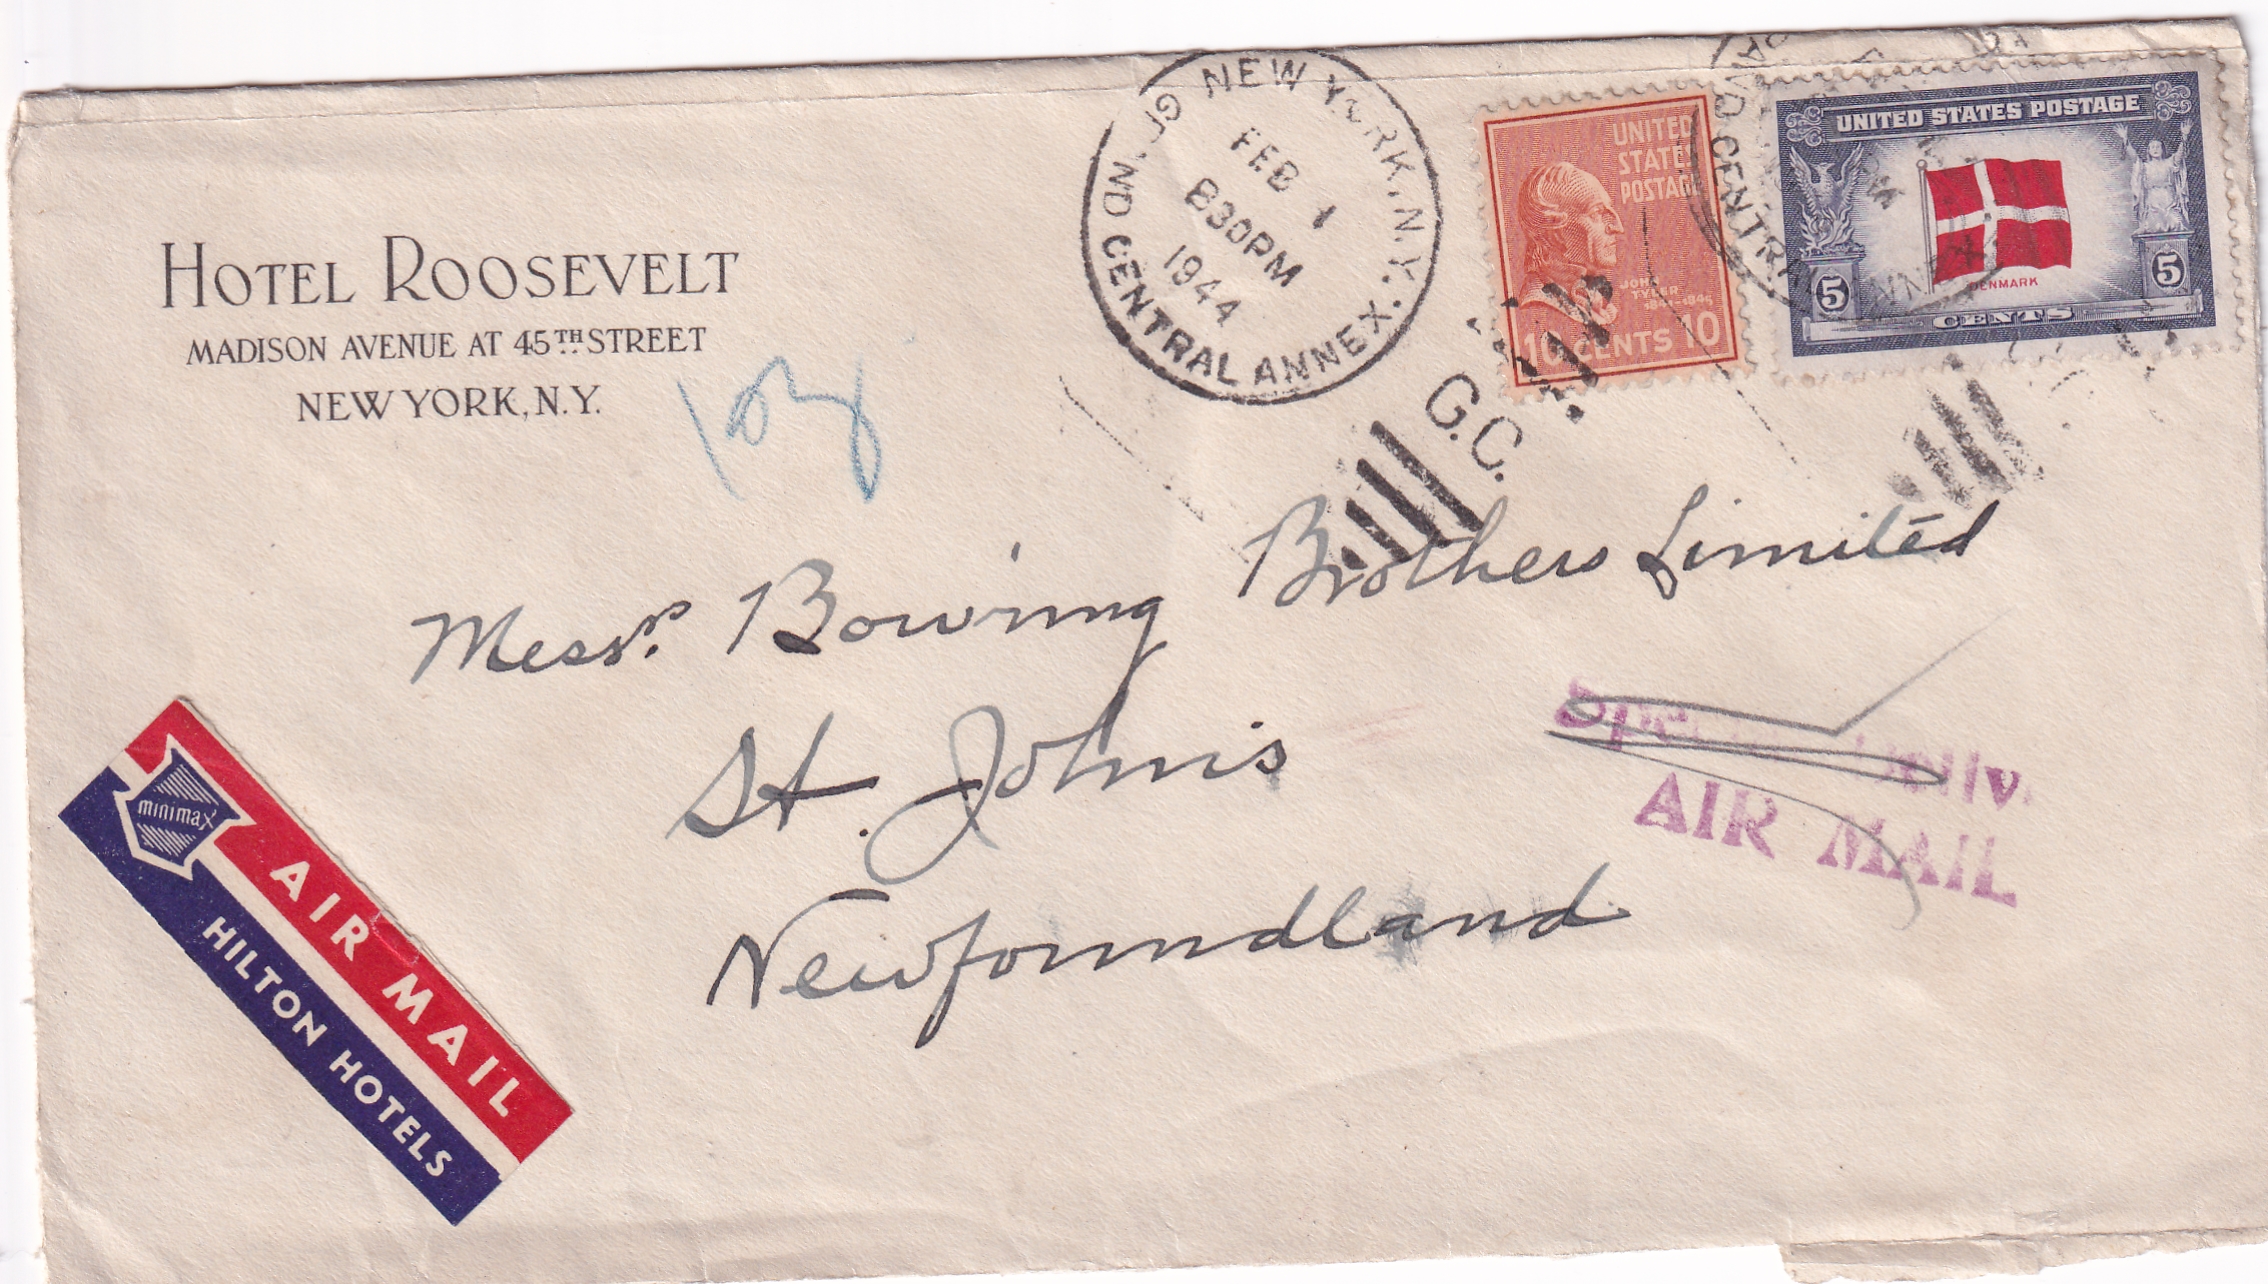 HOTEL ROOSEVELT
MADISON AVENUE AT 45TH STREET
NEW YORK, N.Y.
NEW YORK, N.Y.
FEB 1
830PM
1944
CENTRAL ANNEX
G.C.
UNITED
STATES
POSTAGE
JOHN
TYLER
1841-1845
10 CENTS 10
UNITED STATES POSTAGE
DENMARK
5 5
CENTS
CENTRAL
Messrs. Bowring Brothers Limited
St. John's
Newfoundland
AIR MAIL
minimax
AIR MAIL
HILTON HOTELS